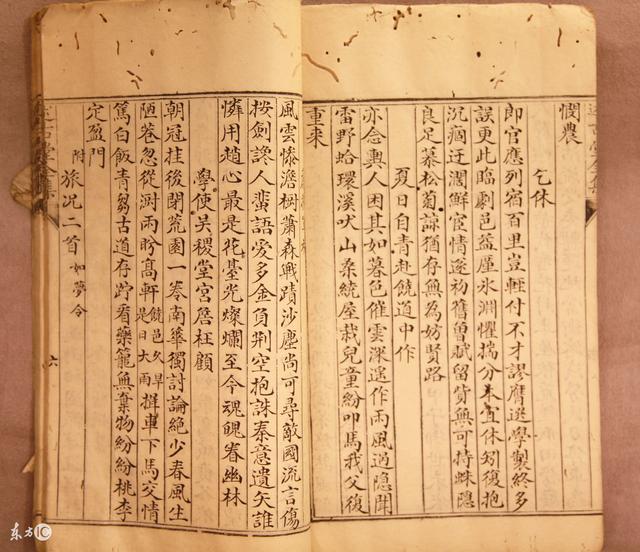 憫農
乞休
郎官應列宿百里豈輕付不才謬膺選學製終多
誤更此臨劇邑益厪氷淵懼揣分本宜休矧復抱
沉痼迂濶鮮宦情遂初舊曾賦留貲無可持蛛隱
良足慕松菊諒猶存無為妨賢路
夏日自青赴饒道中作
亦念輿人困其如暮色催雲深遙作雨風過隱聞
雷野蛤環溪吠山桑繞屋栽兒童紛叩馬我父復
重来
風雲慘澹樹蕭森戰蹟沙塵尚可尋敵國流言傷
按劍讒人蜚語愛多金負荆空抱誅秦意遺矢誰
憐用趙心最是花臺光燦爛至今魂魄眷幽林
學使吴稷堂宮詹枉顧
朝冠挂後閉荒園一卷南華獨討論絶少春風生
陋巷忽從澍雨盻高軒饒邑久旱是日大雨攆車下馬交情
篤白飯青芻古道存跱看藥籠無棄物紛紛桃李
定盈門
附旅况二首如夢令
六
东方IC